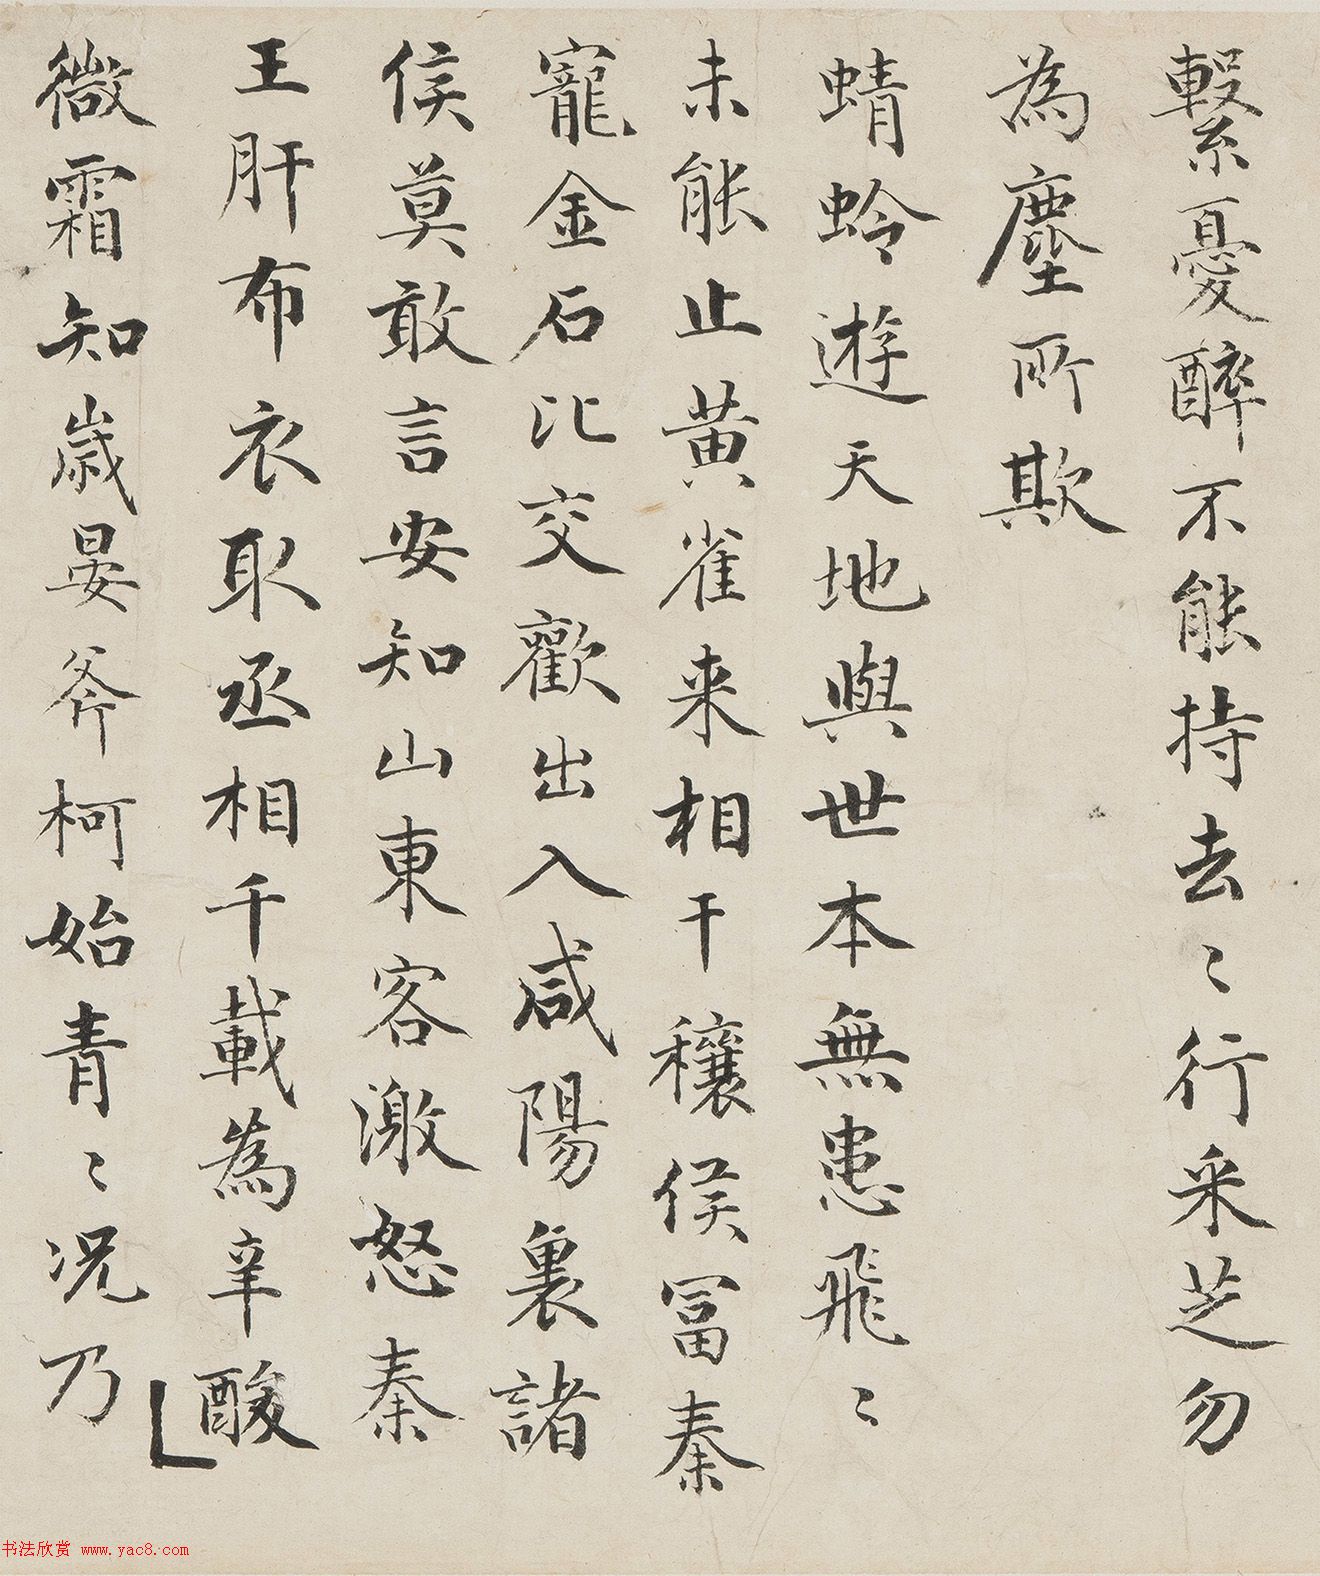 繫憂醉不能持去〻行采芝勿
為塵所欺
蜻蛉遊天地與世本無患飛〻
未能止黄雀来相干穰侯富秦
寵金石比交歡出入咸陽裏諸
侯莫敢言安知山東客激怒秦
王肝布衣取丞相千載為辛酸
微霜知歳晏斧柯始青〻况乃
书法欣赏 www.yac8.com